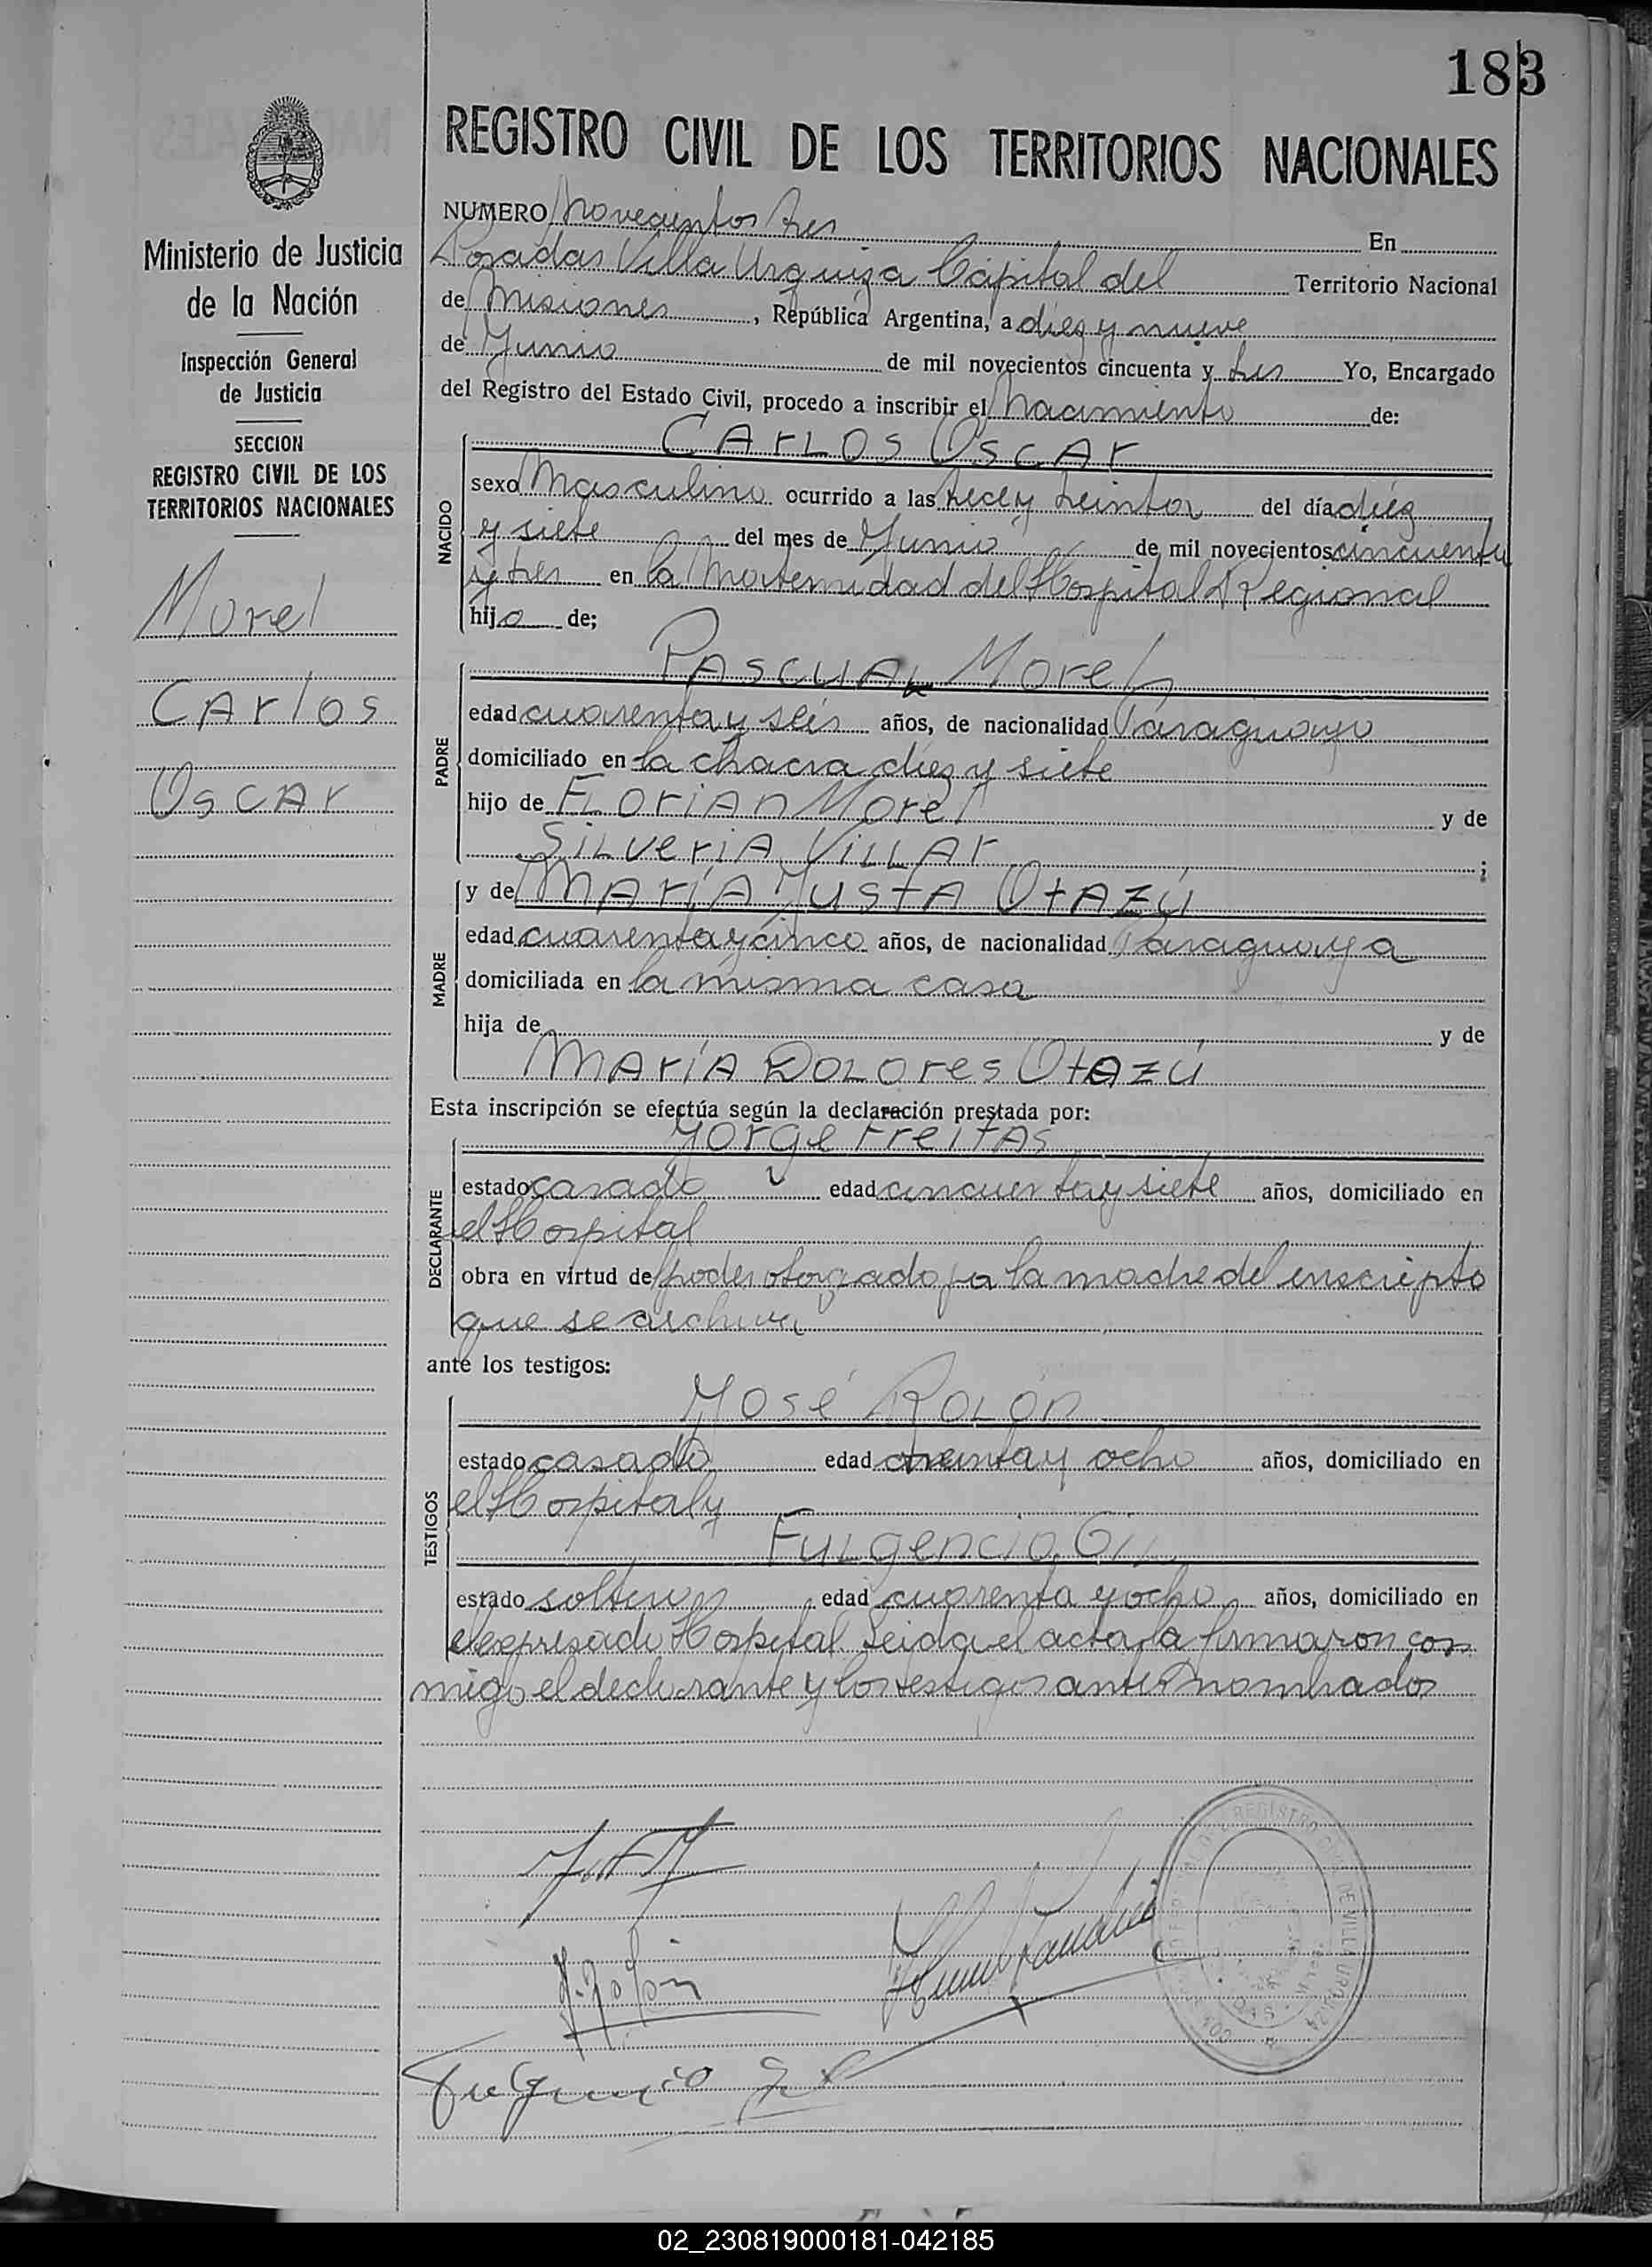 183
REGISTRO CIVIL DE LOS TERRITORIOS NACIONALES
Ministerio de Justicia
de la Nación
Inspección General
de Justicia
SECCION
REGISTRO CIVIL DE LOS
TERRITORIOS NACIONALES
Morel
Carlos
Oscar
NUMERO Novecientos tres En
Posadas Villa Urquiza Capital del Territorio Nacional
de Misiones, República Argentina, a diez y nueve
de Junio de mil novecientos cincuenta y tres Yo, Encargado
del Registro del Estado Civil, procedo a inscribir el Nacimiento de:
CArLOS OSCAr
NACIDO
sexo Masculino ocurrido a las trece y treinta del día diez
y siete del mes de Junio de mil novecientos cincuenta
y tres en la Maternidad del Hospital Regional
hijo de;
PASCUAL Morel
PADRE
edad cuarenta y seis años, de nacionalidad Paraguayo
domiciliado en la chacra diez y siete
hijo de FLOriAn Morel y de
SiLVeriA ViLLAr ;
MADRE
y de MAríA JustA OtAZú
edad cuarenta y cinco años, de nacionalidad Paraguaya
domiciliada en la misma casa
hija de y de
MAríA DOLOres OtAZú
Esta inscripción se efectúa según la declaración prestada por:
Jorge FreitAs
DECLARANTE
estado casado edad cincuenta y siete años, domiciliado en
el Hospital
obra en virtud de poder otorgado a la madre del inscripto
que se archiva
ante los testigos:
José ROLón
TESTIGOS
estado casado edad treinta y ocho años, domiciliado en
el Hospital y
FuLgencio Gil
estado soltero edad cuarenta y ocho años, domiciliado en
el expresado Hospital. Leida el acta, la firmaron con
migo el declarante y los testigos antes nombrados
J. Rolón
Fulgencio Gil
REGISTRO CIVIL DE VILLA URQUIZA
02_230819000181-042185